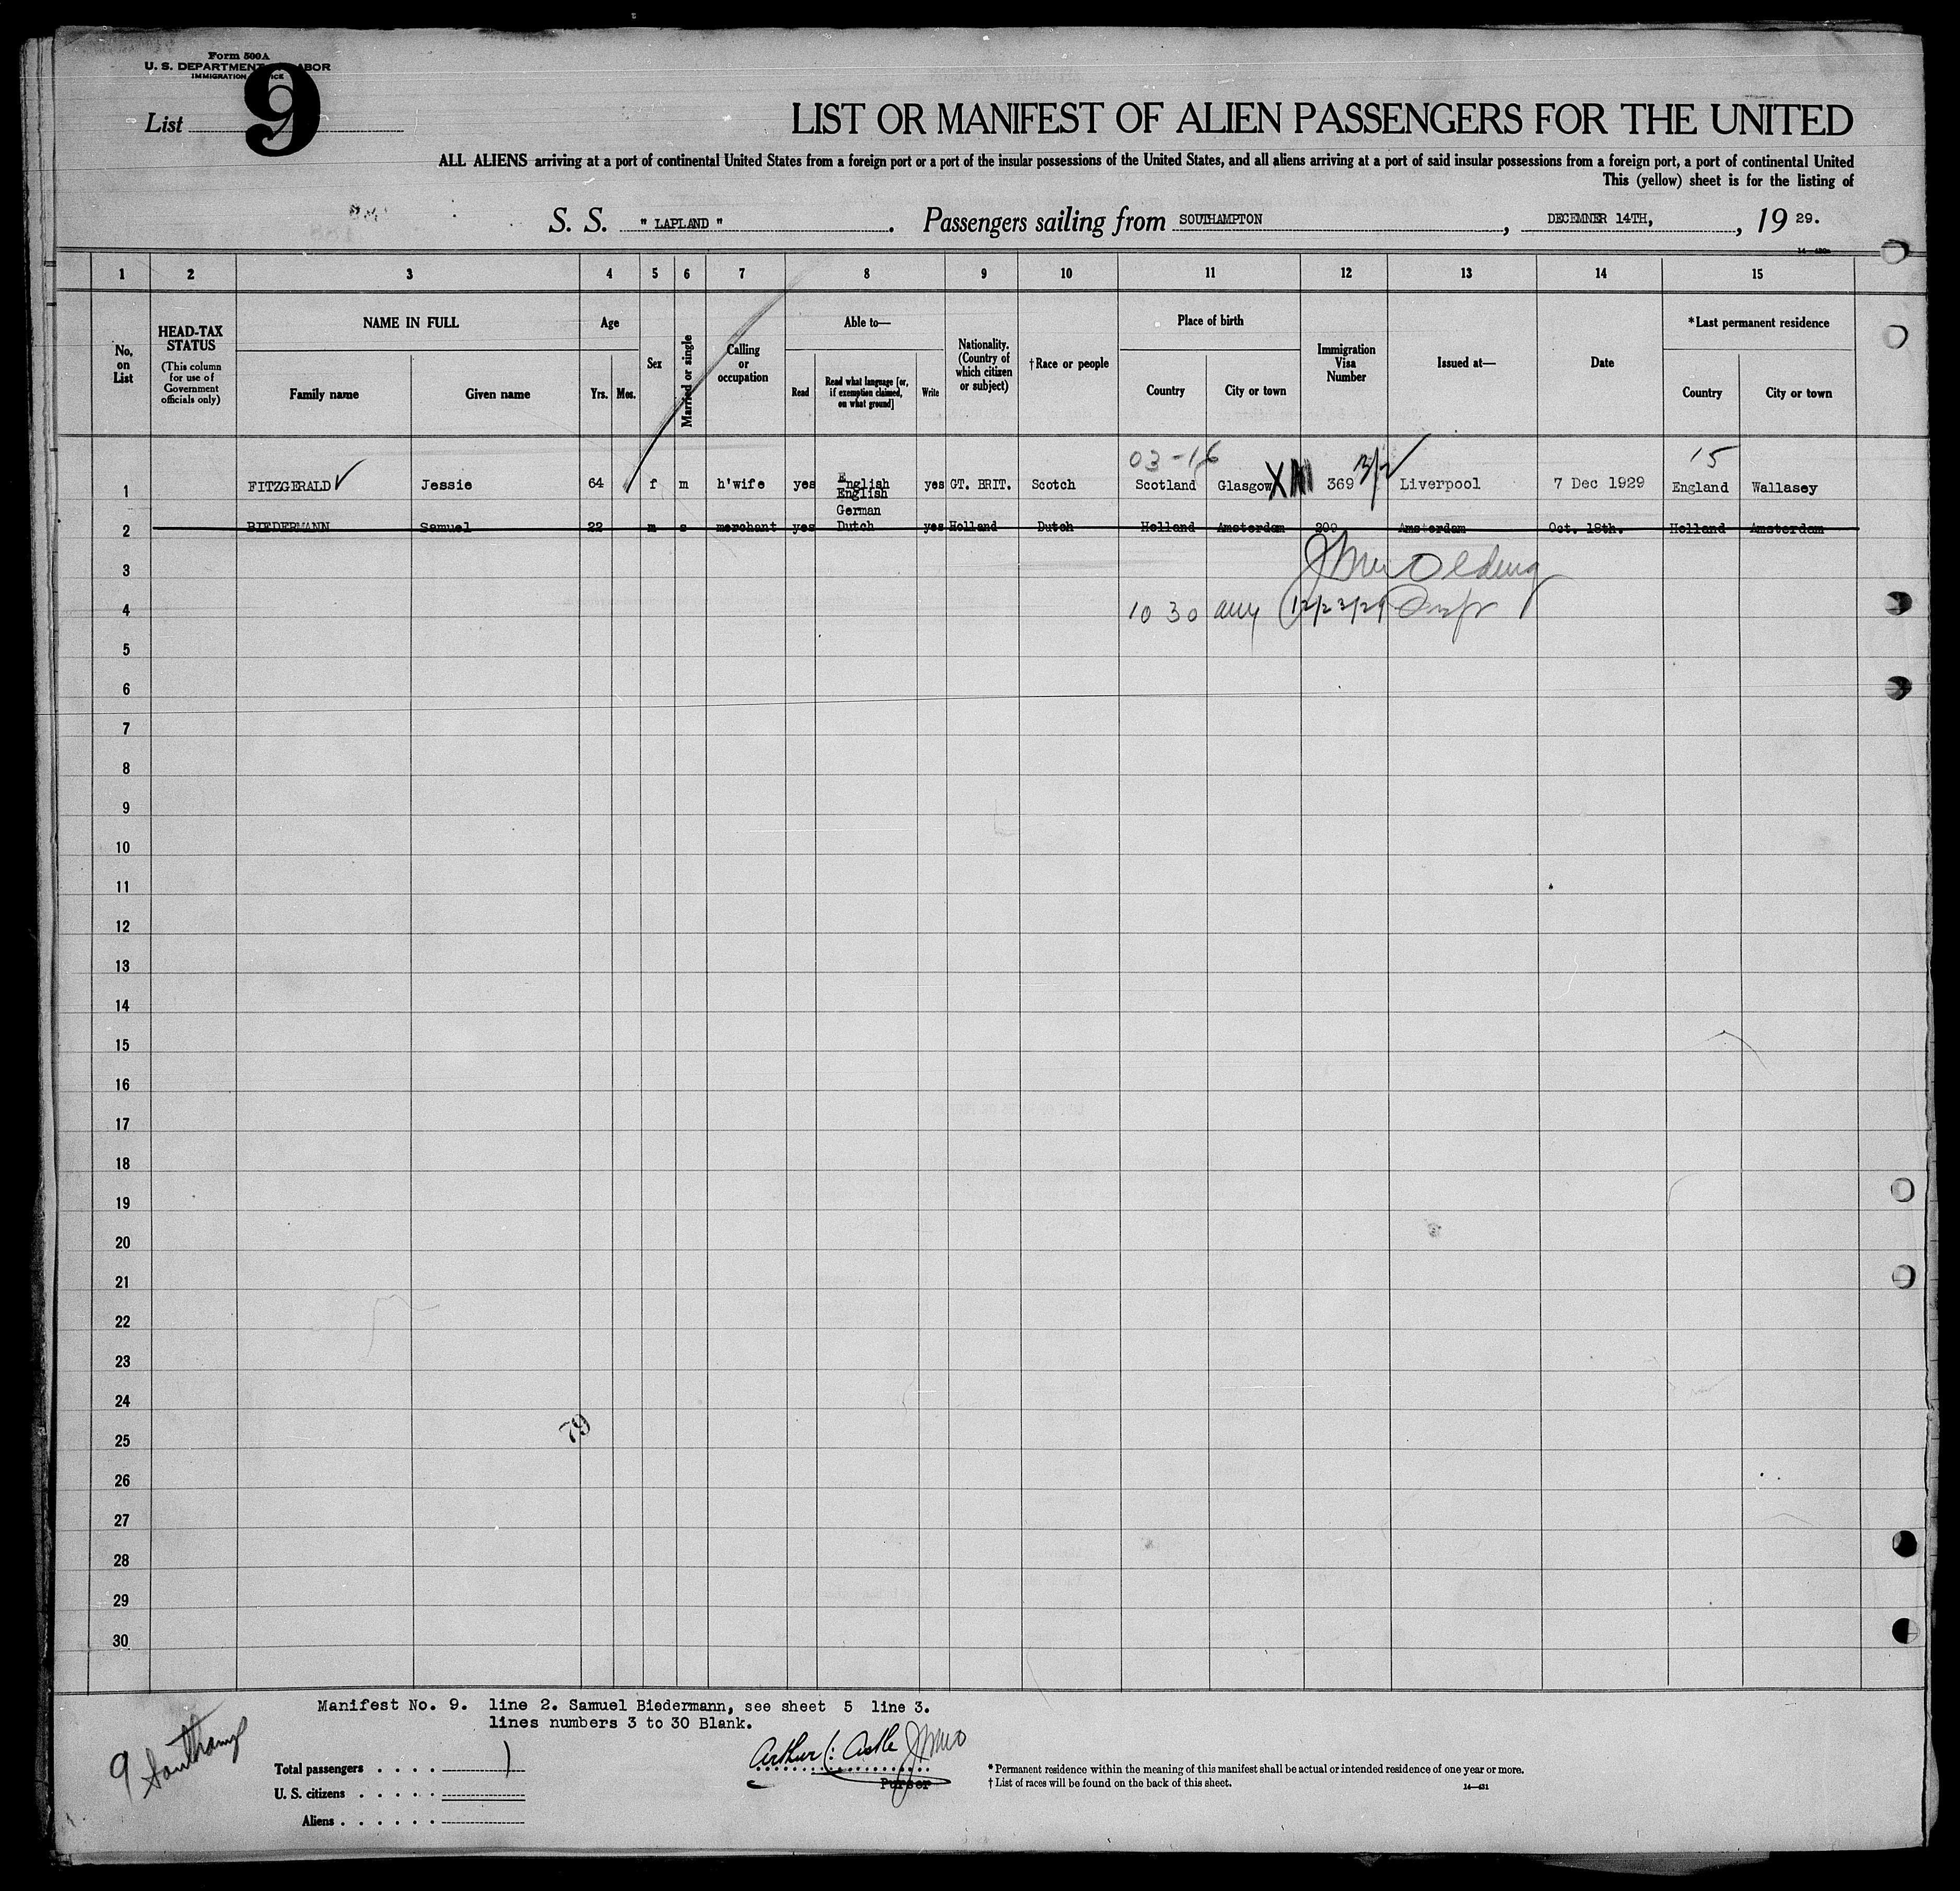 Form 500A
U. S. DEPARTMENT LABOR
IMMIGRATION
List 9
LIST OR MANIFEST OF ALIEN PASSENGERS FOR THE UNITED
ALL ALIENS arriving at a port of continental United States from a foreign port or a port of the insular possessions of the United States, and all aliens arriving at a port of said insular possessions from a foreign port, a port of continental United
This (yellow) sheet is for the listing of
S. S. " LAPLAND ". Passengers sailing from SOUTHAMPTON, DECEMNER 14TH, , 19 29.
1 2 3 4 5 6 7 8 9 10 11 12 13 14 15
No. on List
HEAD-TAX STATUS
(This column for use of Government officials only)
NAME IN FULL
Family name Given name
Age
Yrs. Mos.
Sex
Married or single
Calling or occupation
Able to—
Read
Read what language [or, if exemption claimed, on what ground]
Write
Nationality. (Country of which citizen or subject)
†Race or people
Place of birth
Country City or town
Immigration Visa Number
Issued at—
Date
*Last permanent residence
Country City or town
03-16 15
1 FITZGERALD Jessie 64 f m h'wife yes English yes GT. BRIT. Scotch Scotland Glasgow 369 Liverpool 7 Dec 1929 England Wallasey
English
German
2 BIEDERMANN Samuel 22 m s merchant yes Dutch yes Holland Dutch Holland Amsterdam 209 Amsterdam Oct. 18th. Holland Amsterdam
3
4 10 30 12/23/29
5
6
7
8
9
10
11
12
13
14
15
16
17
18
19
20
21
22
23
24
79
25
26
27
28
29
30
Manifest No. 9. line 2. Samuel Biedermann, see sheet 5 line 3.
lines numbers 3 to 30 Blank.
9 Southamp
Arthur Castle
Purser
Total passengers . . . . 1
U. S. citizens . . . . .
Aliens . . . . . .
* Permanent residence within the meaning of this manifest shall be actual or intended residence of one year or more.
† List of races will be found on the back of this sheet.
14—431